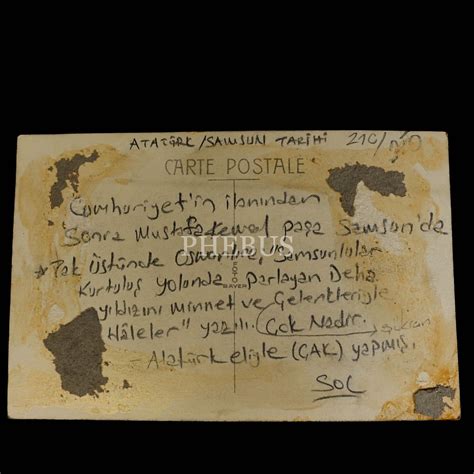 ATATÜRK/SAMSUN TARİHİ 210/
CARTE POSTALE
Cumhuriyet'in ilanından
Sonra Mustafa Kemal paşa Samsun'da
PHEBUS
* Tak Üstünde Samsunlular
FOTO
SAVER
Kurtuluş yolunda parlayan Deha
yıldızını minnet ve
Hâleler" yazılı. Çok Nadir.
- Atatürk eliyle (ÇAK) yapmış.
SOL